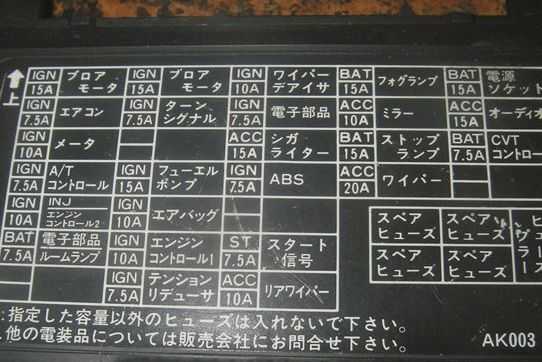 上
IGN 15A ブロアモータ IGN 15A ブロアモータ IGN 10A ワイパーデアイサ BAT 15A フォグランプ BAT 15A 電源ソケット
IGN 7.5A エアコン IGN 7.5A ターンシグナル IGN 7.5A 電子部品 ACC 10A ミラー ACC 15A オーディオ
IGN 10A メータ ACC 15A シガライター BAT 15A ストップランプ BAT 7.5A CVTコントロー
IGN 7.5A A/Tコントロール IGN 15A フューエルポンプ IGN 7.5A ABS ACC 20A ワイパー
IGN 10A INJ エンジンコントロール2 IGN 10A エアバッグ
BAT 7.5A 電子部品 ルームランプ IGN 10A エンジンコントロール1 ST 7.5A スタート信号
IGN 7.5A テンションリデューサ ACC 10A リアワイパー
スペアヒューズ スペアヒューズ
スペアヒューズ スペアヒューズ
:指定した容量以外のヒューズは入れないで下さい。
.他の電装品については販売会社にお問合せ下さい。
AK003